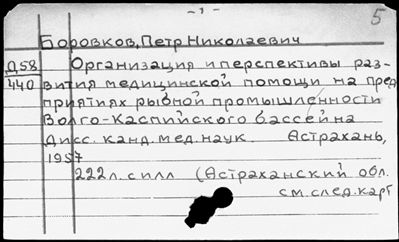 - 1 -
5
Боровков, Петр Николаевич
Д58 Организация и перспективы раз-
440 вития медицинской помощи на пред
приятиях рыбной промышленности
Волго-Каспийского бассейна
Дисс. канд. мед. наук. Астрахань,
1957
222 л. с илл (Астраханский обл.
см. след. карт